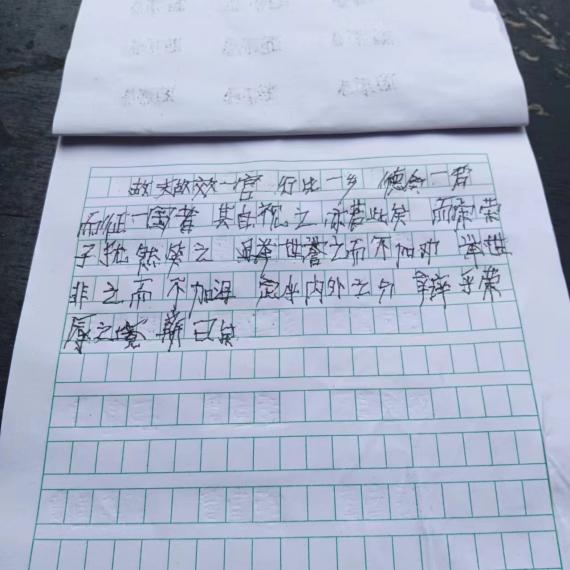 故夫知效一官 行比一乡 德合一君
而征一国者 其自视也 亦若此矣 而宋荣
子犹然笑之 且举世誉之而不加劝 举世
非之而不加沮 定乎内外之分 辩乎荣
辱之境 斯已矣